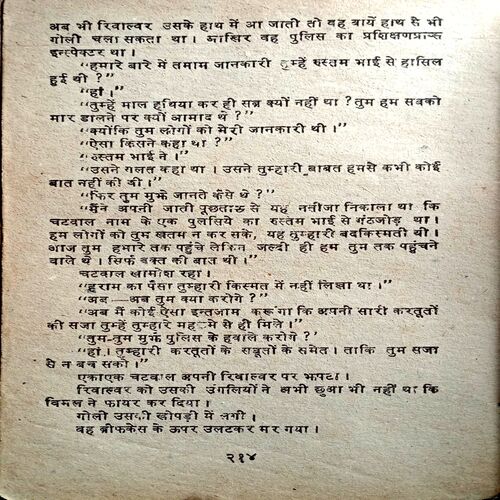 अब भी रिवाल्वर उसके हाथ में आ जाती तो वह बायें हाथ से भी
गोली चला सकता था । आखिर वह पुलिस का प्रशिक्षणप्राप्त
इन्सपेक्टर था ।
“हमारे बारे में तमाम जानकारी तुम्हें रुस्तम भाई से हासिल
हुई थी ?”
“हां ।”
“तुम्हें माल हथिया कर ही सब्र क्यों नहीं था ? तुम हम सबको
मार डालने पर क्यों आमादा थे ?”
“क्योंकि तुम लोगों को मेरी जानकारी थी ।”
“ऐसा किसने कहा था ?”
“रुस्तम भाई ने ।”
“उसने गलत कहा था । उसने तुम्हारी बाबत हमसे कभी कोई
बात नहीं की थी ।”
“फिर तुम मुझे जानते कैसे थे ?”
“मैंने अपनी जाती पूछताछ से यह नतीजा निकाला था कि
चटवाल नाम के एक पुलसिये का रुस्तम भाई से गंठजोड़ था ।
हम लोगों को तुम खतम न कर सके, यह तुम्हारी बदकिस्मती थी ।
आज तुम हमारे तक पहुंचे लेकिन जल्दी ही हम तुम तक पहुंचने
वाले थे । सिर्फ वक्त की बात थी ।”
चटवाल खामोश रहा ।
“हराम का पैसा तुम्हारी किस्मत में नहीं लिखा था ।”
“अब—अब तुम क्या करोगे ?”
“अब मैं कोई ऐसा इन्तजाम करूंगा कि अपनी सारी करतूतों
की सजा तुम्हें तुम्हारे महकमे से ही मिले ।”
“तुम-तुम मुझे पुलिस के हवाले करोगे ?”
“हां । तुम्हारी करतूतों के सबूतों के समेत । ताकि तुम सजा
से न बच सको ।”
एकाएक चटवाल अपनी रिवाल्वर पर झपटा ।
रिवाल्वर को उसकी उंगलियों ने अभी छुआ भी नहीं था कि
विमल ने फायर कर दिया ।
गोली उसकी खोपड़ी में लगी ।
वह ब्रीफकेस के ऊपर उलटकर मर गया ।
२१४